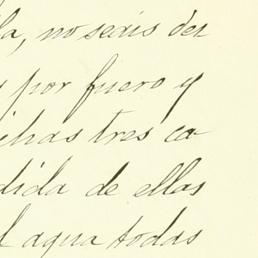 la, no seais der
por fuero y
ichas tres ca-
dida de ellas
l agua todas